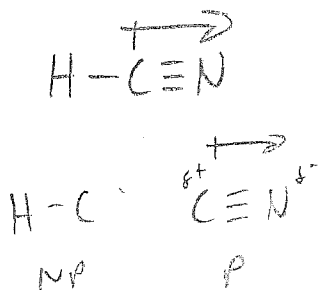 H-C≡N
H-C δ+ C≡N δ-
NP P